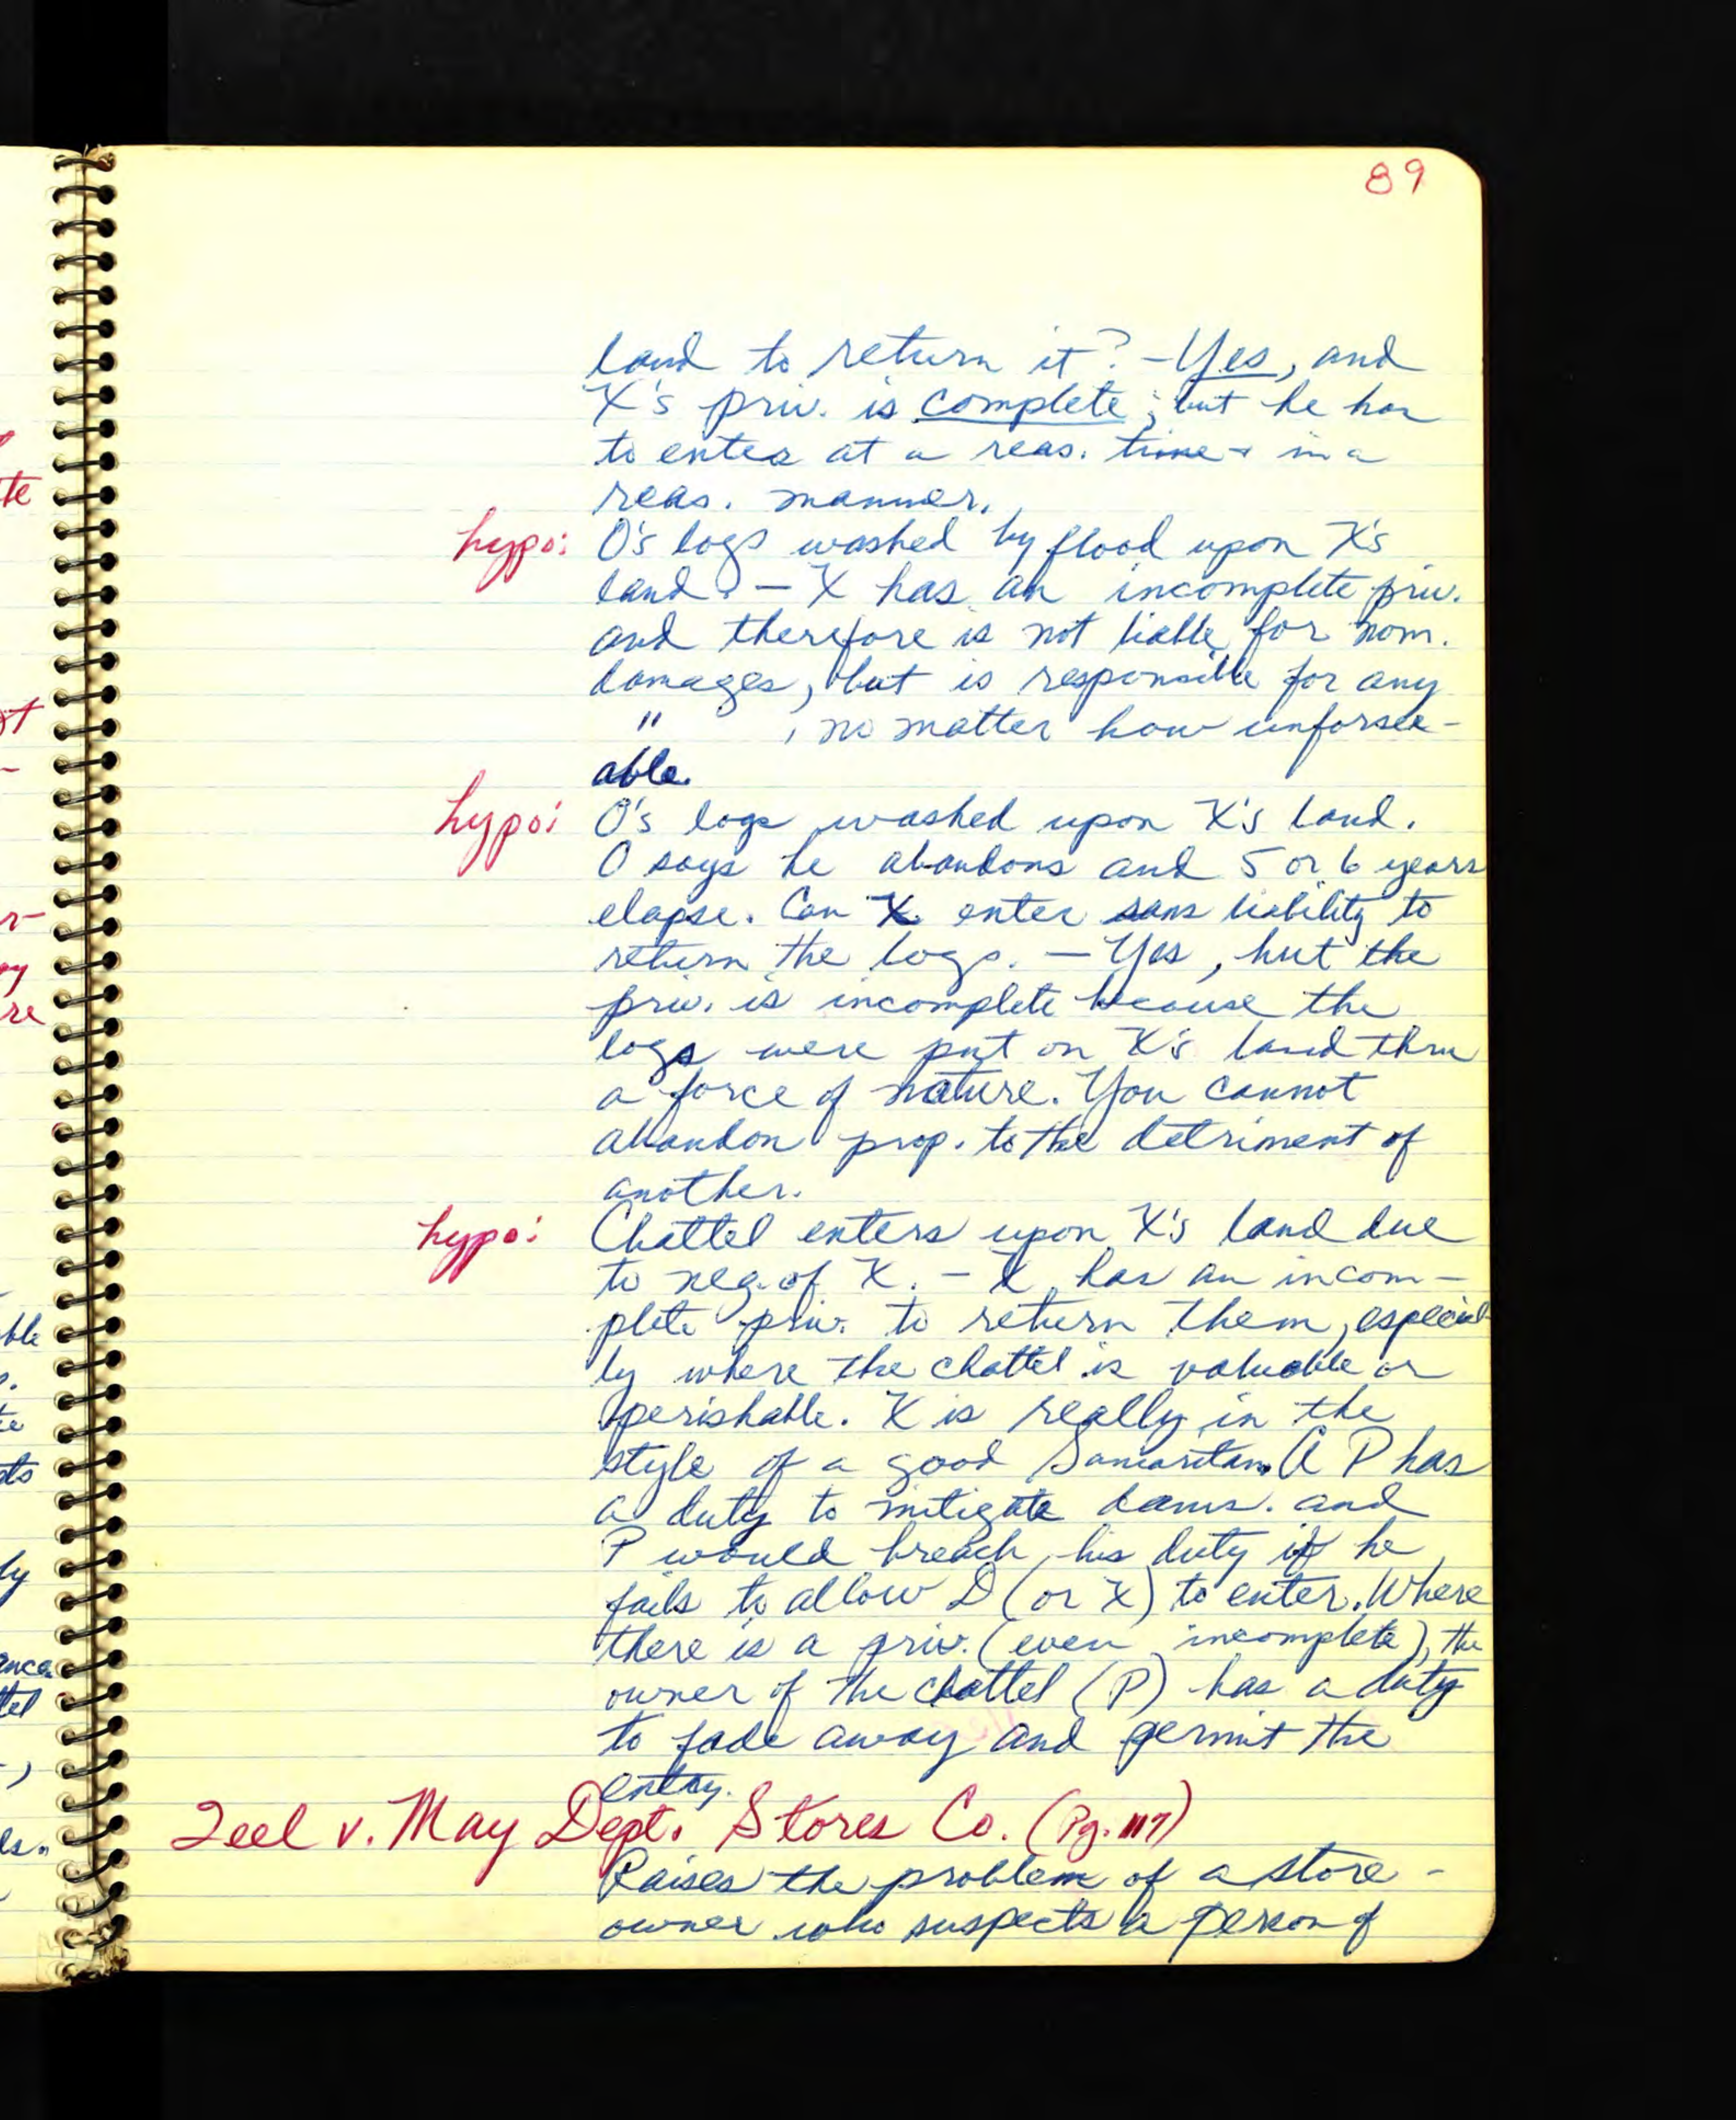 89
land to return it? - Yes, and
X's priv. is complete; but he has
to enter at a reas. time + in a
reas. manner.
hypo: O's logs washed by flood upon X's
land. — X has an incomplete priv.
and therefore is not liable for nom.
damages, but is responsible for any
" , no matter how unforsee-
able.
hypo: O's logs washed upon X's land.
O says he abandons and 5 or 6 years
elapse. Can X enter sans liability to
return the logs. — Yes, but the
priv. is incomplete because the
logs were put on X's land thru
a force of nature. You cannot
abandon prop. to the detriment of
another.
hypo: Chattel enters upon X's land due
to neg. of X. - X has an incom-
plete priv. to return them, especial-
ly where the chattel is valuable or
perishable. X is really in the
style of a good Samaritan. A P has
a duty to mitigate dams. and
P would breach his duty if he
fails to allow D (or X) to enter. Where
there is a priv. (even incomplete), the
owner of the chattel (P) has a duty
to fade away and permit the
entry.
Teel v. May Dept. Stores Co. (Pg. 117)
Raises the problem of a store-
owner who suspects a person of
te
ot
-
r-
ay
re
ble
ts
ly
ance
tel
ls.